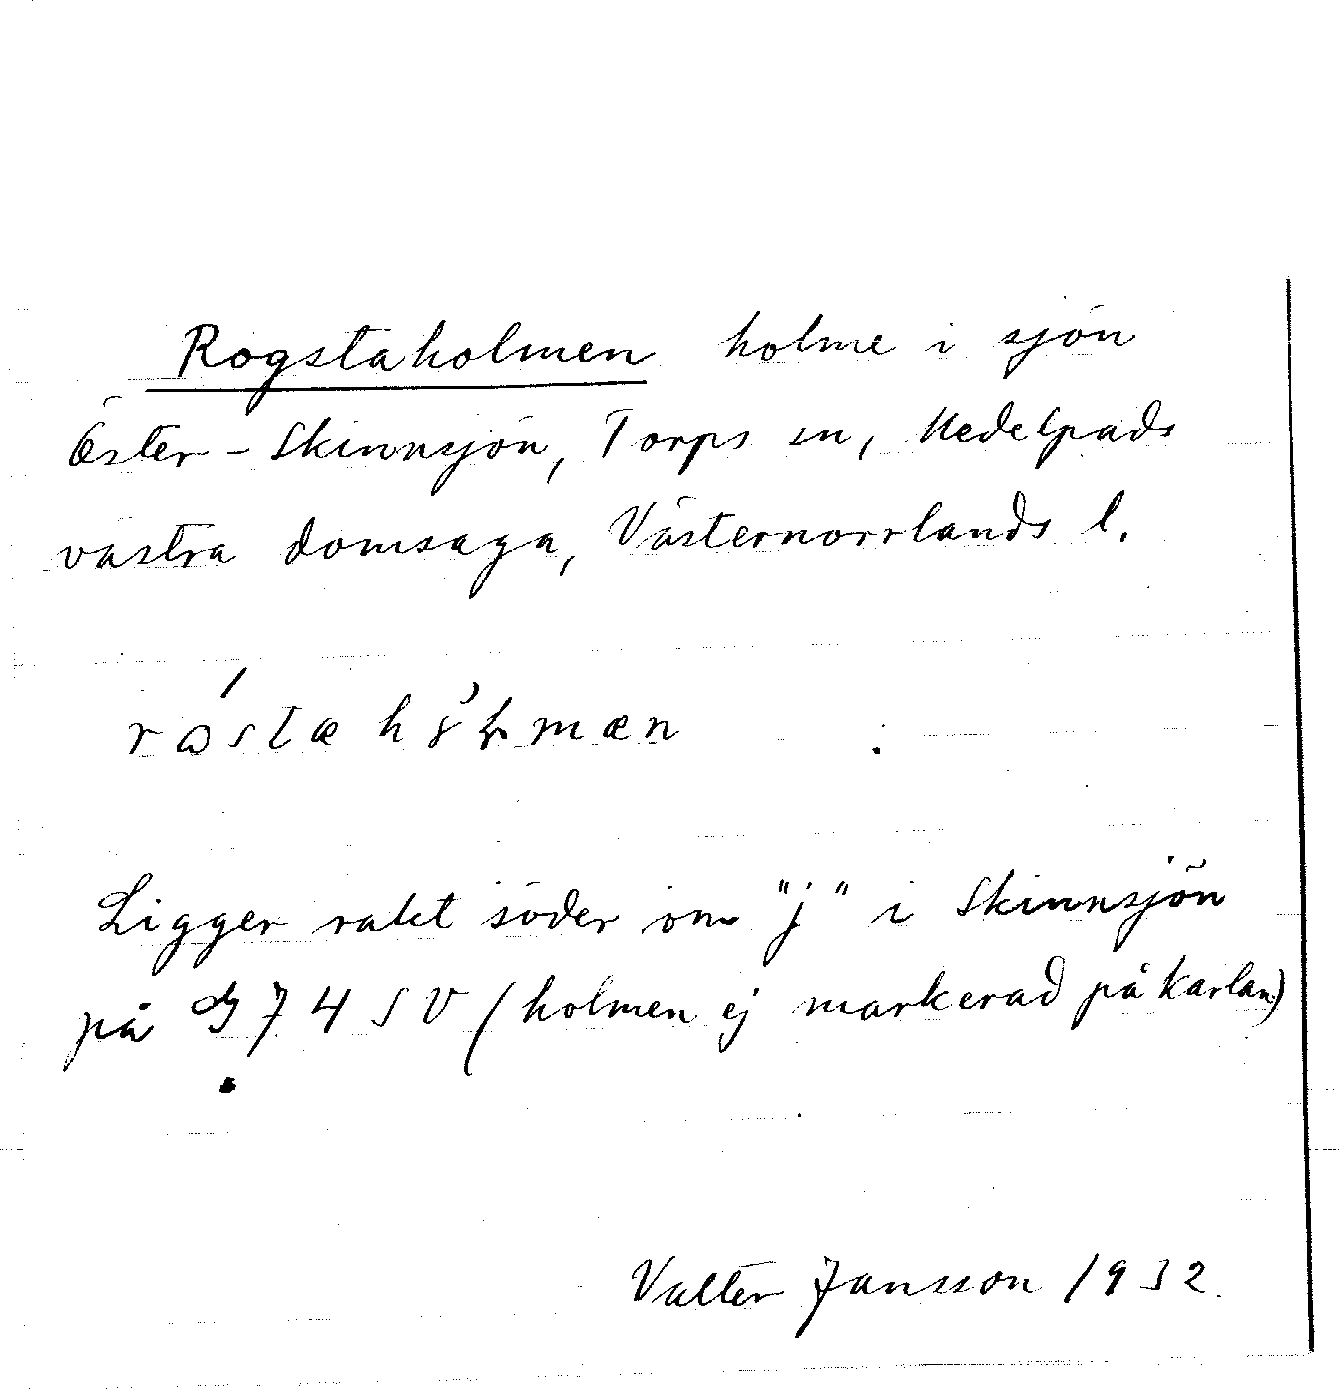 Rogstaholmen holme i sjön
Öster-Skinnsjön, Torps sn, Medelpads
västra domsaga, Västernorrlands l.
Ligger rakt söder om "j" i Skinnsjön
på 74 SV (holmen ej markerad på kartan)
Valter Jansson 1932.